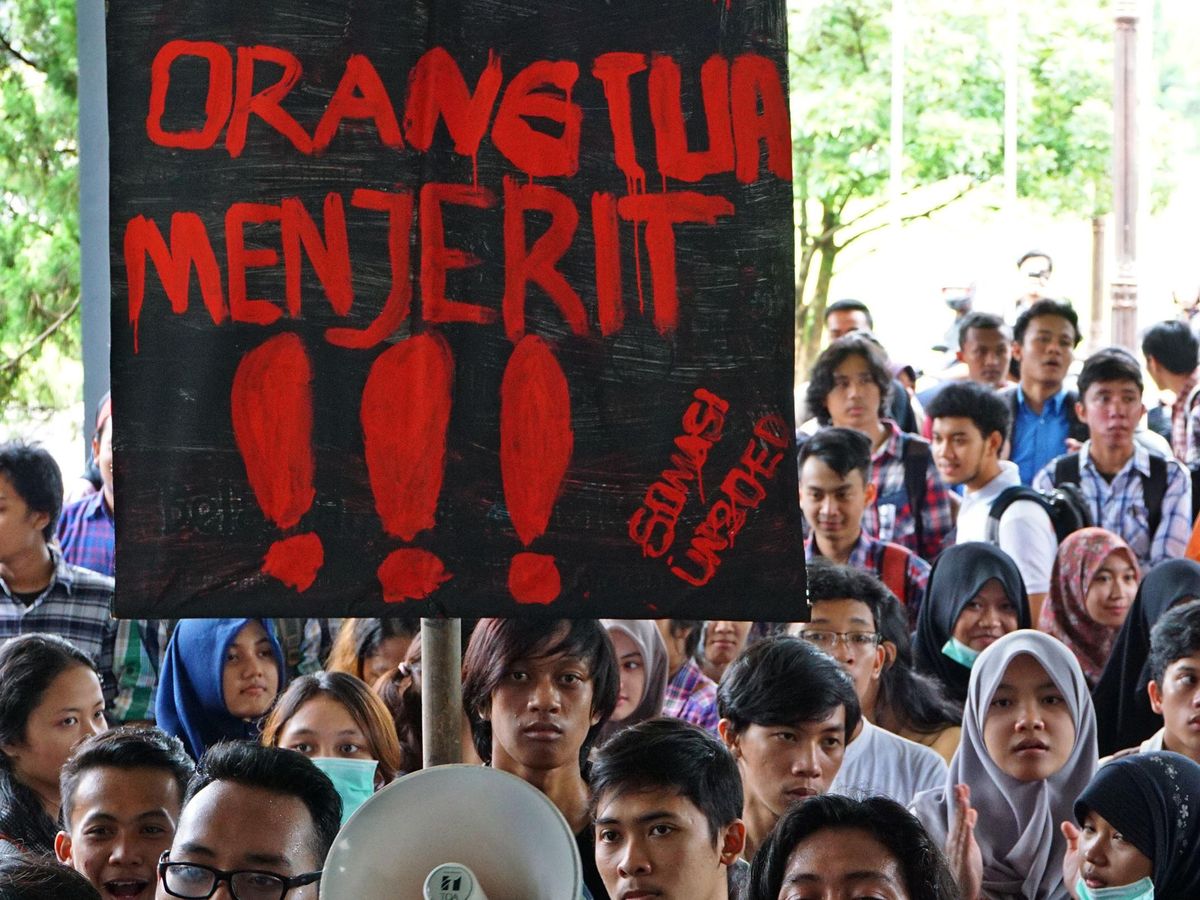 ORANGTUA
MENJERIT
!!!
SOMASI
UNSOED
TOA